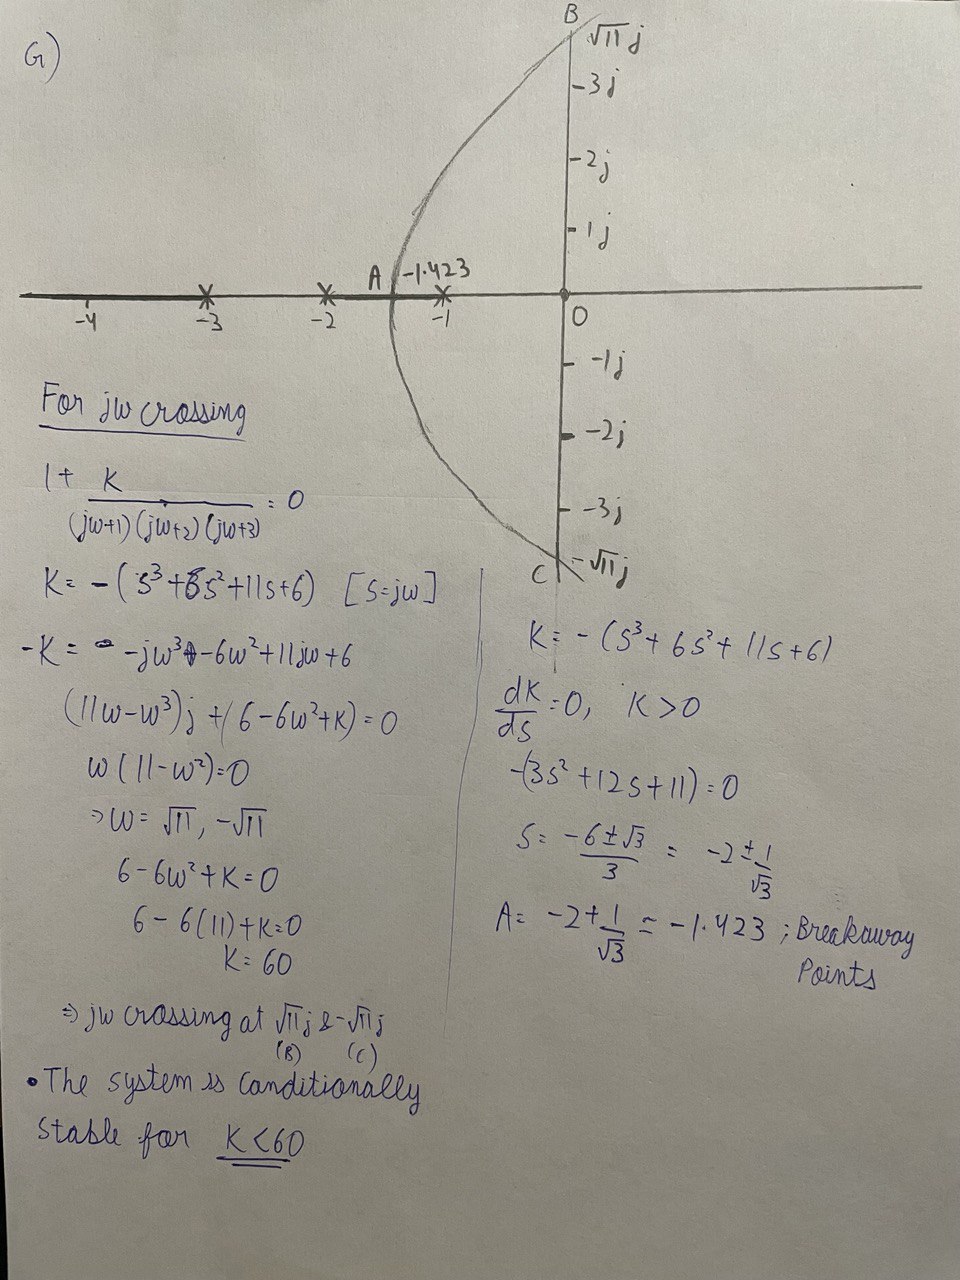 G)
B
√11 j
-3j
-2j
-1j
A -1.423
-4 -3 -2 -1 0
-1j
-2j
-3j
C -√11 j
For jw crossing
1 + K / (jw+1)(jw+2)(jw+3) = 0
K = -(s³+6s²+11s+6) [s=jw]
-K = -jw³-6w²+11jw+6
(11w-w³)j + (6-6w²+K) = 0
w(11-w²)=0
⇒ w = √11, -√11
6-6w²+K=0
6-6(11)+K=0
K=60
⇒ jw crossing at √11j & -√11j
(B) (C)
• The system is conditionally
stable for K<60
K = -(s³+6s²+11s+6)
dK/ds = 0, K>0
-(3s²+12s+11)=0
S = (-6±√3)/3 = -2 ± 1/√3
A = -2+1/√3 = -1.423 ; Breakaway
Points